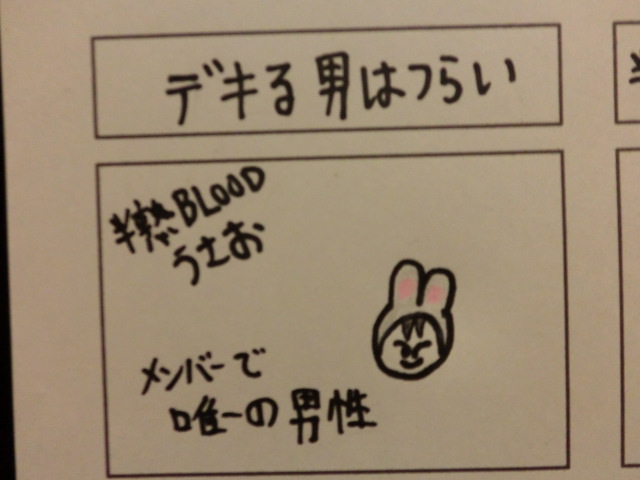 デキる男はつらい
半熟BLOOD
うさお
メンバーで
唯一の男性